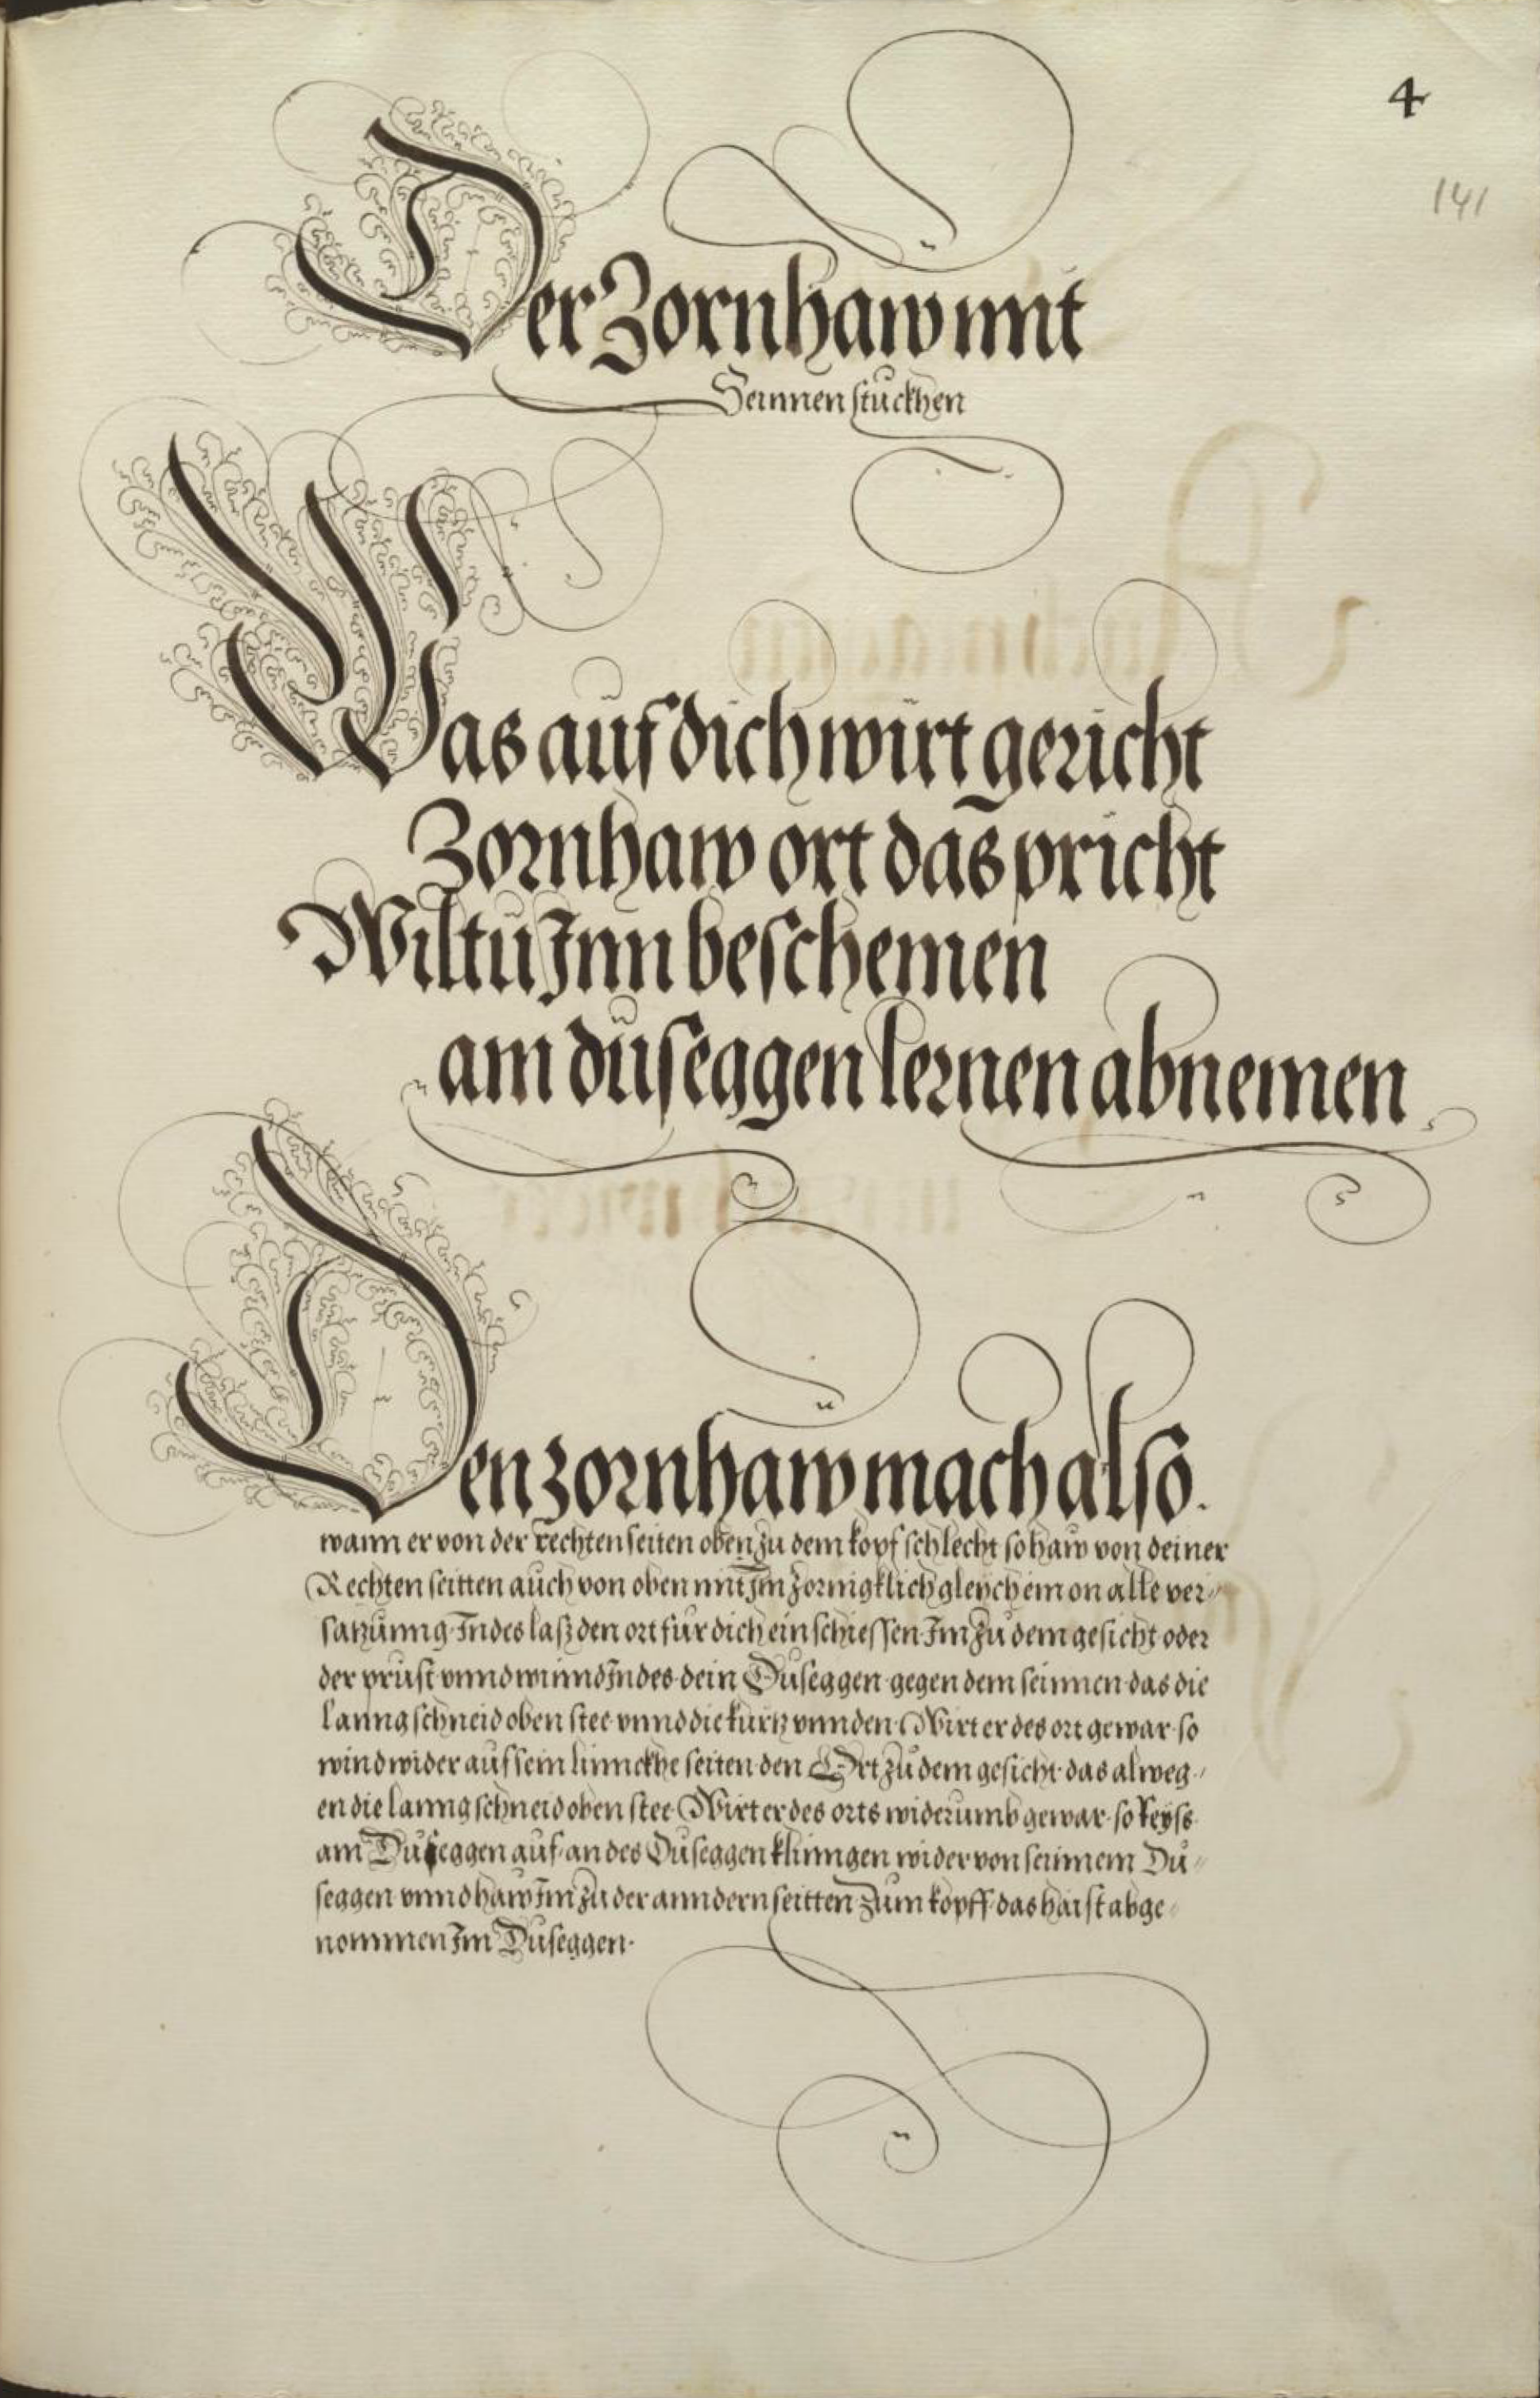 4
141
Der Zornhaw mit
Seinnen stuckhen
Was auf dich wirt gericht
Zornhaw ort das pricht
Wiltu Inn beschemen
am duseggen lernen abnemen
Den zornhaw mach also.
wann er von der rechten seiten oben zu dem kopf schlecht so haw von deiner
Rechten seitten auch von oben mit Im zornigklich gleych ein on alle ver-
satzunng. Indes laß den ort fur dich ein schiessen Im zu dem gesicht oder
der prust vnnd winnd Indes dein Duseggen gegen dem seinnen das die
lanng schneid oben stee vnnd die kurtz vnnden. Wirt er des ort gewar so
wind wider auf sein linnckhe seiten den Ort zu dem gesicht das alweg-
en die lanng schneid oben stee. Wirt er des orts widerumb gewar so Reyss
am Duseggen auf an des Duseggen klinngen wider von seinnem Du-
seggen vnnd haw Im zu der anndern seitten zum kopff das haist abge-
nommen Im Duseggen.